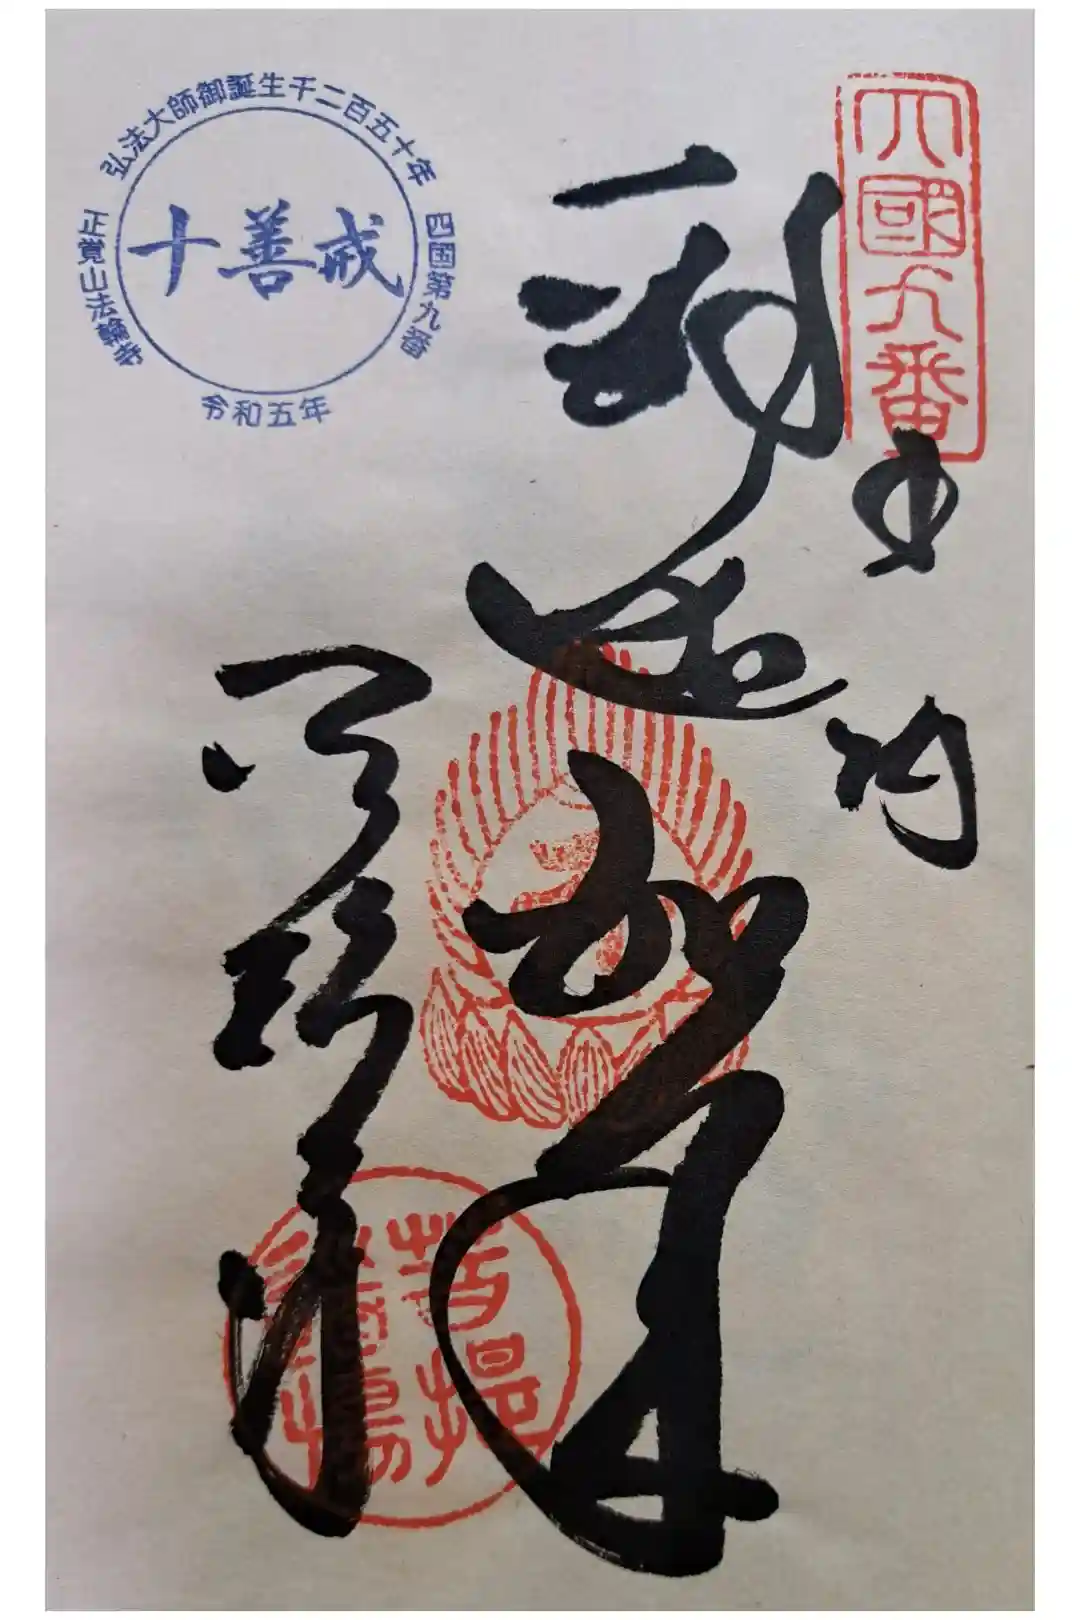 四國九番
奉納
釈迦如来
菩提
弘法大師御誕生千二百五十年
四国第九番
十善戒
正覚山法輪寺
令和五年